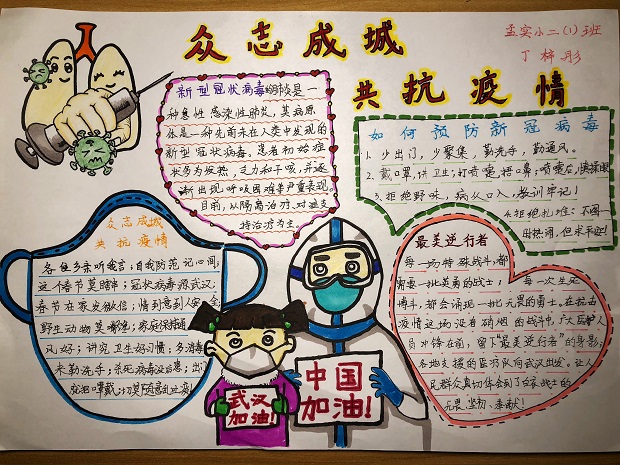 众志成城
共抗疫情
孟实小二(1)班
丁梓彤
新型冠状病毒的肺炎是一
种急性感染性肺炎，其病原
体是一种先前未在人类中发现的
新型冠状病毒。患者初始症
状多为发热，乏力和干咳，并逐
渐出现呼吸困难等严重表现。
目前，以隔离治疗、对症支
持治疗为主
如何预防新冠病毒
1、少出门，少聚集，勤洗手，勤通风。
2、戴口罩，讲卫生；打喷嚏，捂口鼻；喷嚏后，慎揉眼
3、拒绝野味，病从口入，教训牢记！
4、拒绝扎堆：
众志成城
共抗疫情
各位乡亲听我言；自我防范记心间；
这个春节莫瞎串；冠状病毒源武汉；
春节在家发微信；情到意到人安全
野生动物莫嘴馋；
风好；讲究卫生好习惯；多消毒
来勤洗手；杀死病毒没悬念；出门
最美逆行者
每一场特殊战斗，都
需要一批英勇的战士；每一次生死
搏斗，都会涌现一批无畏的勇士。在抗击
疫情这场没有硝烟的战斗中，广大医护人
员冲锋在前，留下"最美逆行者"的身影，
各地支援的医疗队向武汉出发。让人
民群众真切体会到了白衣战士的
无畏、坚韧、奉献！
武汉
加油！
中国
加油！